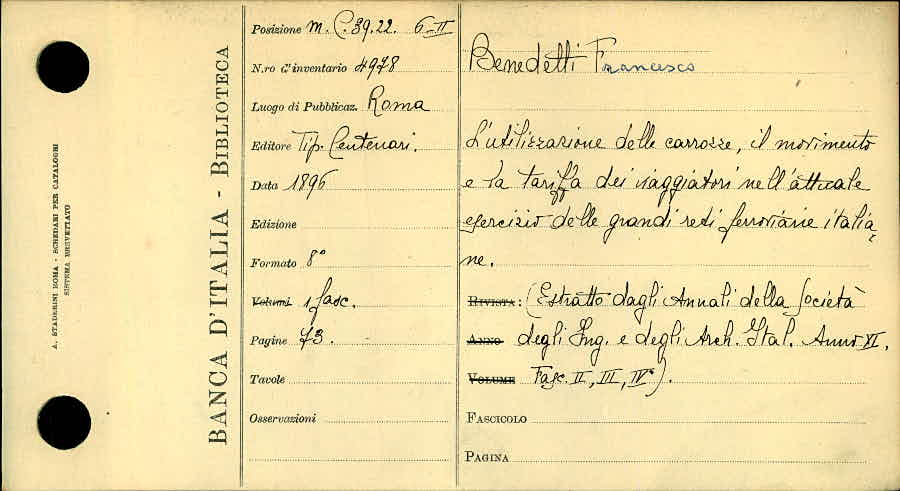 A. STADERINI ROMA - SCHEDARI PER CATALOGHI
SISTEMA BREVETTATO
BANCA D'ITALIA - BIBLIOTECA
Posizione m. C. 39.22. 6-II
N.ro d'inventario 4978
Luogo di Pubblicaz. Roma
Editore Tip. Centenari.
Data 1896
Edizione
Formato 8°
Volumi 1 fasc.
Pagine 73.
Tavole
Osservazioni
Benedetti Francesco
L'utilizzazione delle carrozze, il movimento
e la tariffa dei viaggiatori nell'attuale
esercizio delle grandi reti ferroviarie italia-
ne.
RIVISTA: (Estratto dagli Annali della Società
ANNO degli Ing. e degli Arch. Ital. Anno XI.
VOLUME Fasc. II, III, IV°).
FASCICOLO
PAGINA